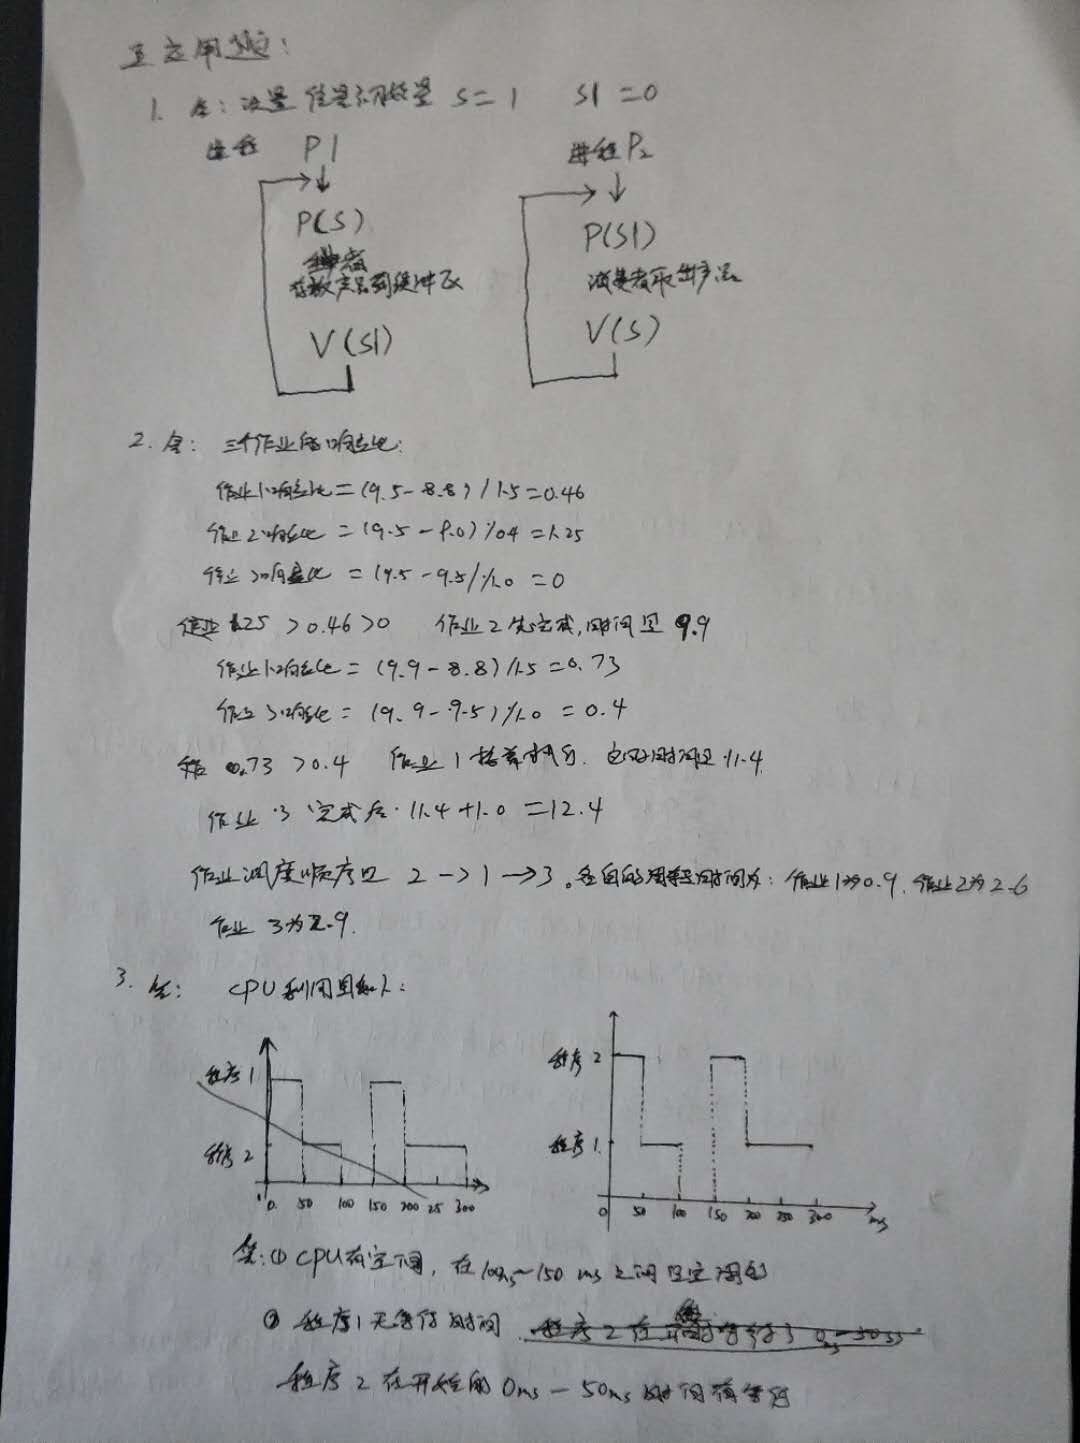 五 应用题：
1. 答：设置信号灯数量 S=1 S1=0
进程 P1 进程P2
P(S) P(S1)
存放产品到缓冲区 消费者取出产品
V(S1) V(S)
2. 答：三个作业的响应比：
作业1响应比=(9.5-8.8)/1.5=0.46
作业2响应比=(9.5-9.0)/0.4=1.25
作业3响应比=(9.5-9.5)/1.0=0
1.25>0.46>0 作业2先完成,时间是9.9
作业1响应比=(9.9-8.8)/1.5=0.73
作业3响应比=(9.9-9.5)/1.0=0.4
0.73>0.4 作业1接着执行. 时间是11.4
作业3完成后 11.4+1.0=12.4
作业调度顺序是 2->1->3。各自的周转时间为：作业1为0.9. 作业2为2.6
作业3为2.9.
3. 答： CPU利用图如下：
程序1 程序2
程序2 程序1
0 50 100 150 200 25 300 0 50 100 150 200 250 300 ms
答:① CPU有空闲，在100ms~150ms之间是空闲的
② 程序1无等待时间.
程序2在开始的0ms-50ms时间有等待